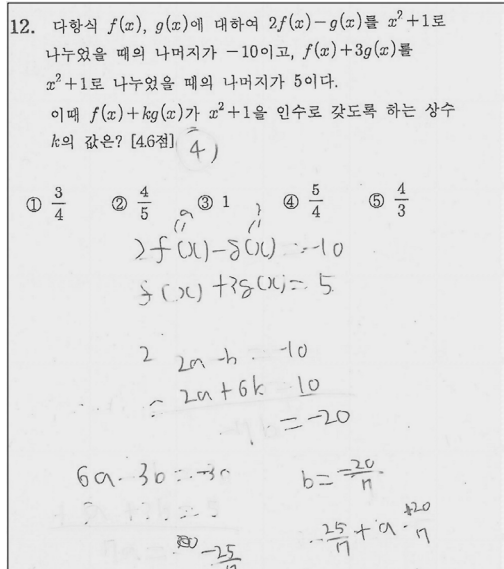 12. 다항식 f(x), g(x)에 대하여 2f(x)-g(x)를 x²+1로
나누었을 때의 나머지가 -10이고, f(x)+3g(x)를
x²+1로 나누었을 때의 나머지가 5이다.
이때 f(x)+kg(x)가 x²+1을 인수로 갖도록 하는 상수
k의 값은? [4.6점]
4)
① 3/4 ② 4/5 ③ 1 ④ 5/4 ⑤ 4/3
2f(x)-g(x) = -10
f(x)+3g(x) = 5
2
2a-b = -10
= 2a+6k 10
= -20
6a - 3b =
b = -20/7
-25/7 + a